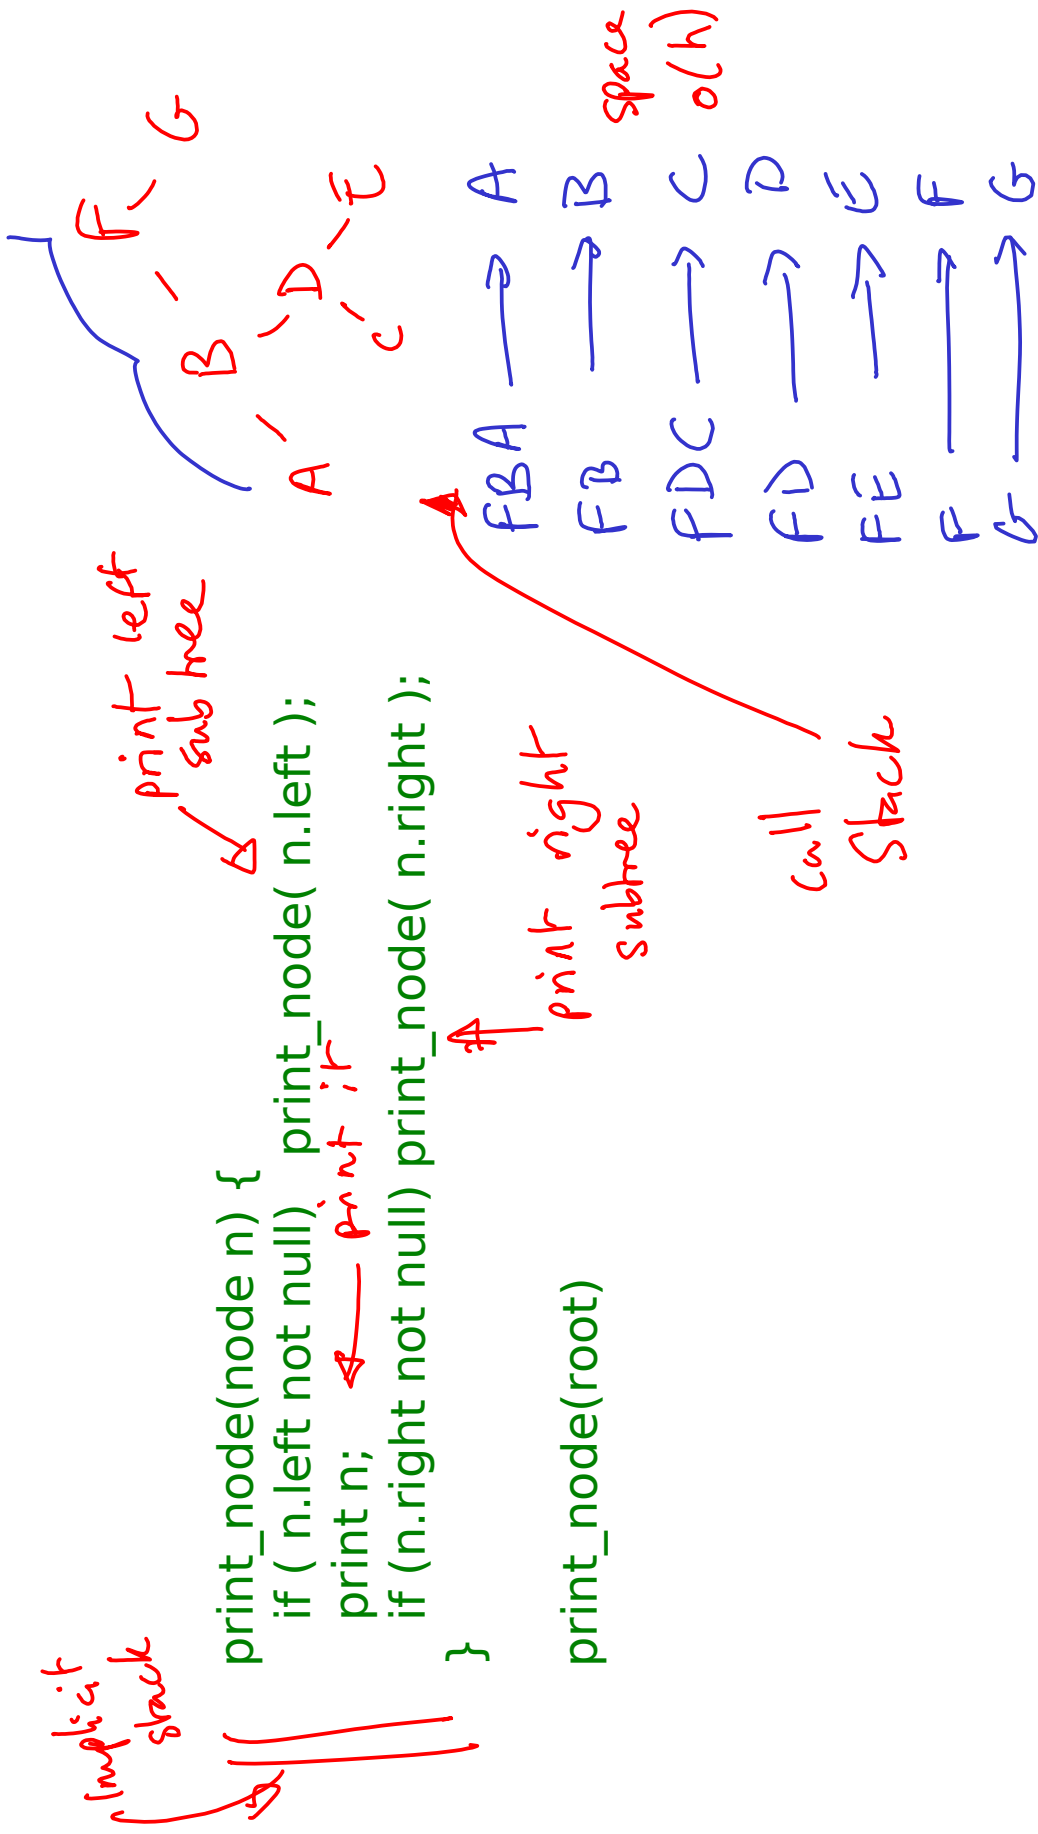 Implicit
stack
print_node(node n) {
if ( n.left not null) print_node( n.left );
print n;
if (n.right not null) print_node( n.right );
}
print_node(root)
print left
subtree
print it
print right
subtree
call
stack
F
B G
A D
C E
FBA → A
FB → B
FDC → C
FD → D
FE → E
F → F
G → G
space
O(h)